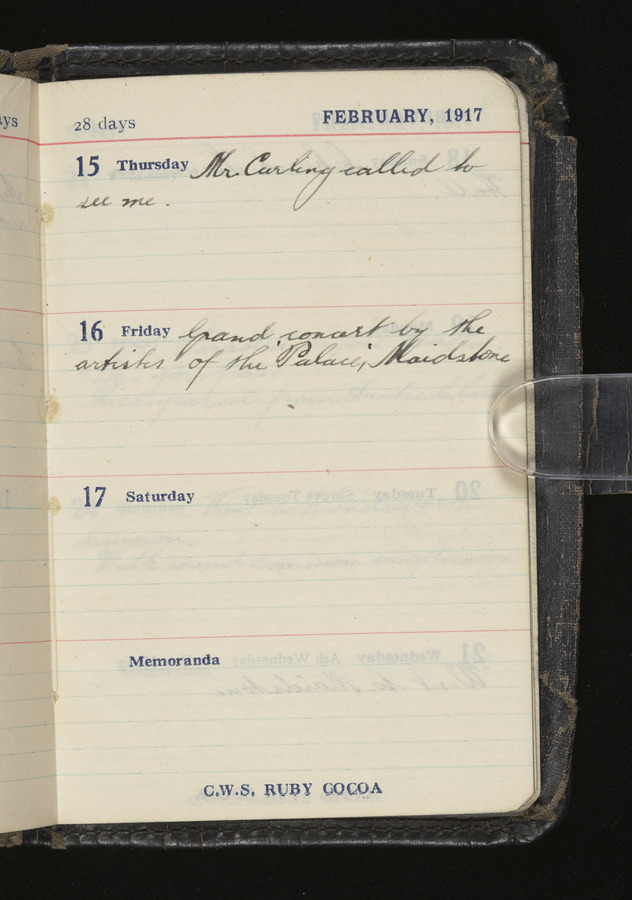 ys
28 days
FEBRUARY, 1917
15 Thursday Mr. Curling called to
see me.
16 Friday Grand concert by the
artistes of the 'Palace', Maidstone
17 Saturday
Memoranda
C.W.S. RUBY COCOA